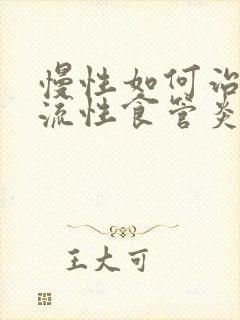 慢性如何治
流性食管炎
王大可